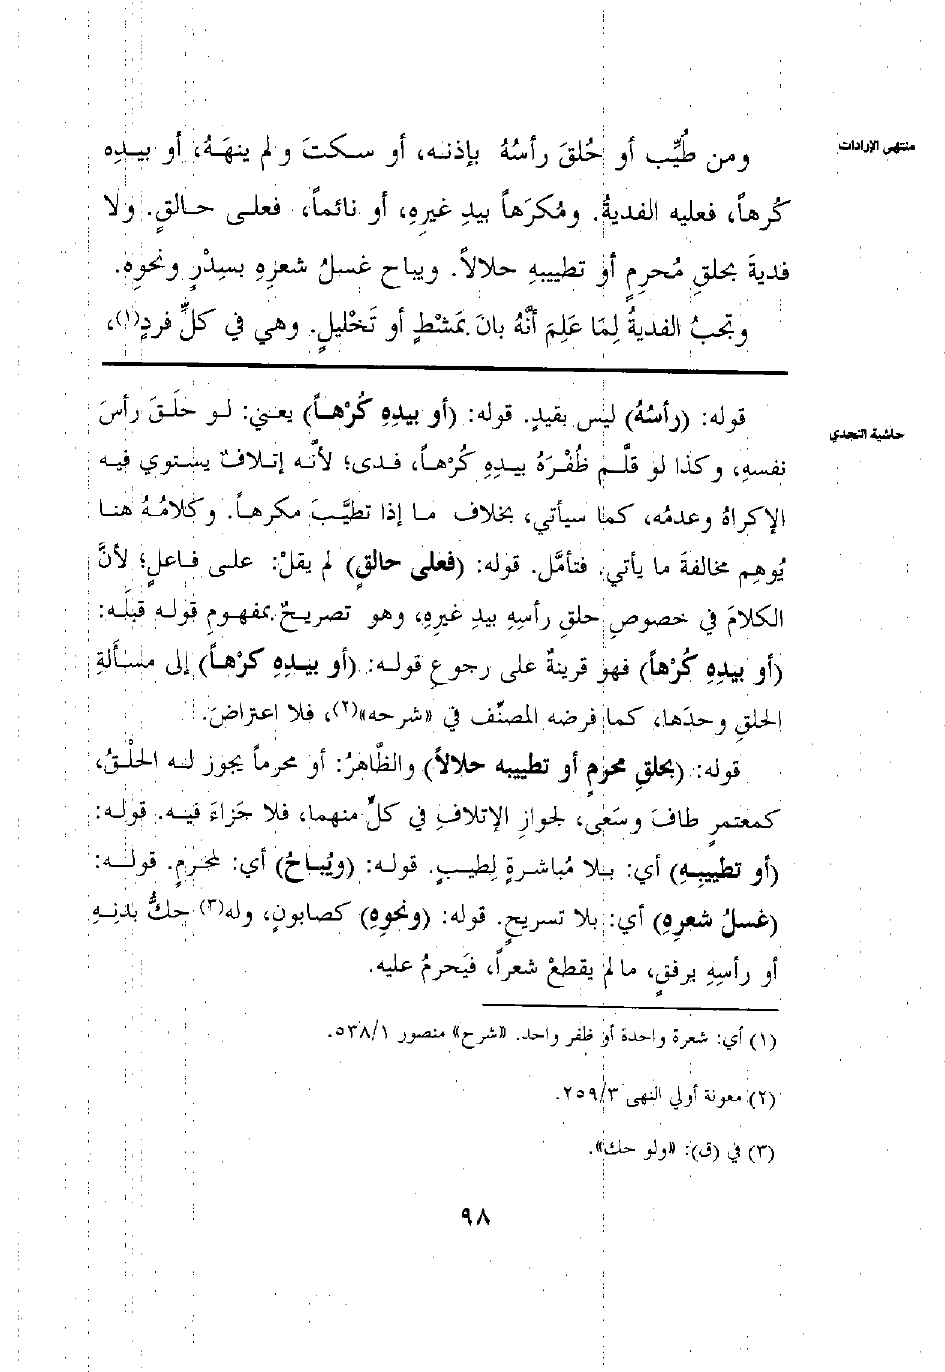 منتهى الإرادات
ومن طُيِّب أو حُلقَ رأسُهُ بإذنه، أو سكتَ ولم ينهَهُ، أو بيدِه
كُرهاً، فعليه الفديةُ. ومُكرَهاً بيدِ غيرِهِ، أو نائماً، فعلى حالقٍ. ولا
فديةَ بحلقِ مُحرِمٍ أو تطييبهِ حلالاً. ويباح غسلُ شعرِهِ بسِدْرٍ ونحوِه.
وتجبُ الفديةُ لِمَا عَلِمَ أنَّهُ بانَ بمَشْطٍ أو تَخْليلٍ. وهي في كلِّ فردٍ(١)،
حاشية النجدي
قوله: (رأسُهُ) ليس بقيدٍ. قوله: (أو بيدِهِ كُرْهاً) يعني: لو حلَقَ رأسَ
نفسهِ، وكذا لو قلَّم ظُفْرَهُ بيدِهِ كُرْهاً، فدى؛ لأنَّه إتلافٌ يستوي فيه
الإكراهُ وعدمُه، كما سيأتي، بخلاف ما إذا تطيَّبَ مكرهاً. وكلامُهُ هنا
يُوهِم مخالفةَ ما يأتي. فتأمَّل. قوله: (فعلى حالقٍ) لم يقلْ: على فاعلٍ؛ لأنَّ
الكلامَ في خصوصِ حلقِ رأسِهِ بيدِ غيرِهِ، وهو تصريحٌ بمفهومِ قولِه قبلَه:
(أو بيدِهِ كُرْهاً) فهو قرينةٌ على رجوعِ قولِه: (أو بيدِهِ كرْهاً) إلى مسألةِ
الحلقِ وحدَها، كما فرضه المصنِّف في «شرحه»(٢)، فلا اعتراضَ.
قوله: (بحلقِ محرِمٍ أو تطييبه حلالاً) والظَّاهرُ: أو محرماً يجوز له الحلْقُ،
كمعتمرٍ طافَ وسَعَى، لجوازِ الإتلافِ في كلٍّ منهما، فلا جَزاءَ فيه. قوله:
(أو تطييبِهِ) أي: بلا مُباشرةٍ لِطيبٍ. قوله: (ويُباحُ) أي: لمحرِمٍ. قوله:
(غسلُ شعرِهِ) أي: بلا تسريحٍ. قوله: (ونحوِهِ) كصابونٍ، وله(٣) حكُّ بدنِهِ
أو رأسِهِ برفقٍ، ما لم يقطعْ شعراً، فيَحرمُ عليه.
(١) أي: شعرة واحدة أو ظفر واحد. «شرح» منصور ٥٣٨/١.
(٢) معونة أولي النهى ٢٥٩/٣.
(٣) في (ق): «ولو حك».
٩٨